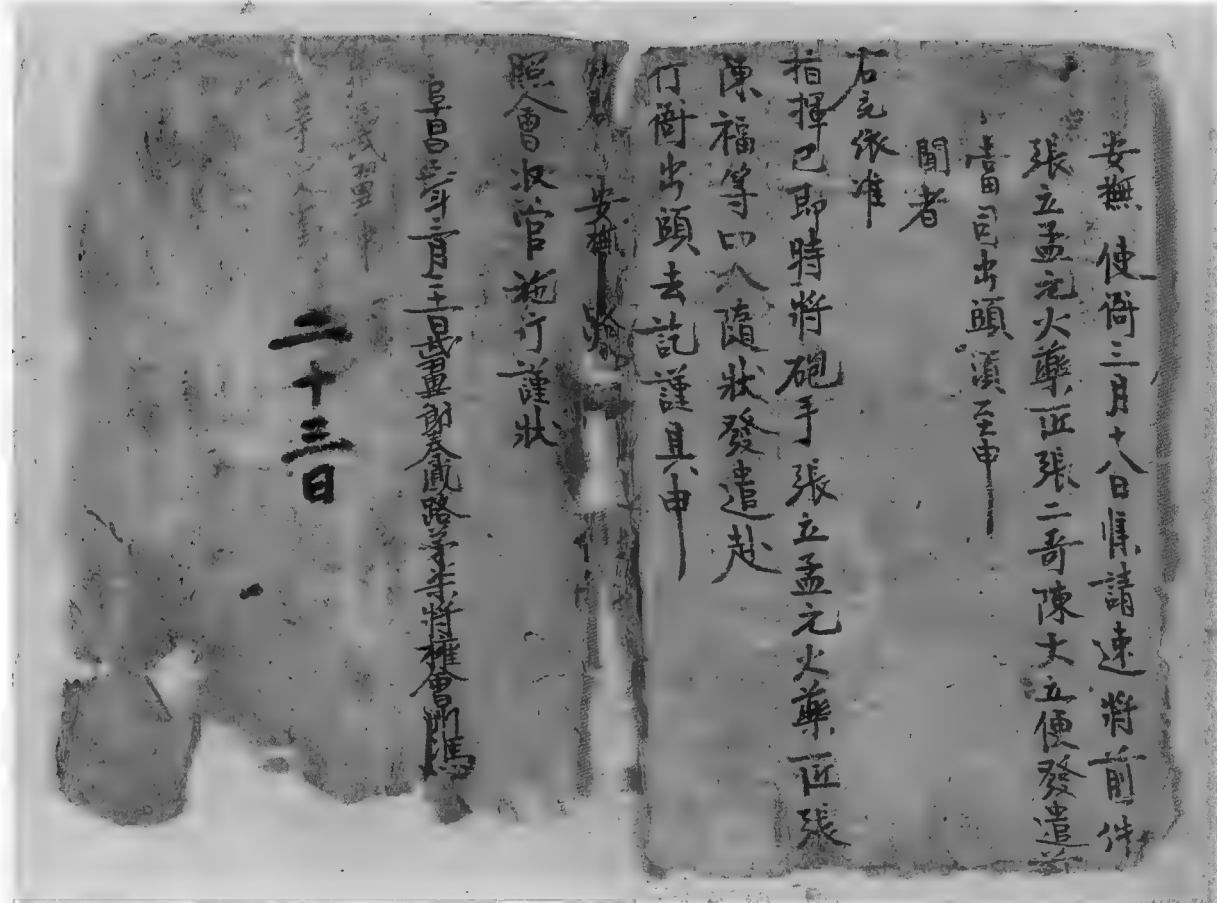 安撫　使衙三月十八日牒請速將前件
張立孟元火藥匠張二哥陳大立便發遣
當司出頭須至申
聞者
右元依准
指揮已即時將砲手張立孟元火藥匠張
陳福等四人隨狀發遣赴
行衙出頭去訖謹具申
安撫
照會收官施行謹狀
阜昌 奉鳳路第 將
二十三日